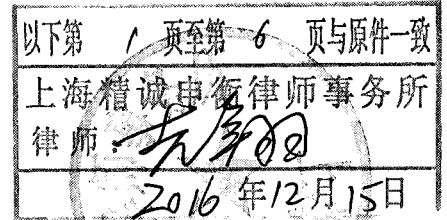 以下第 1 页至第 6 页与原件一致
上海精诚申衡律师事务所
律师：
2016 年12月15日